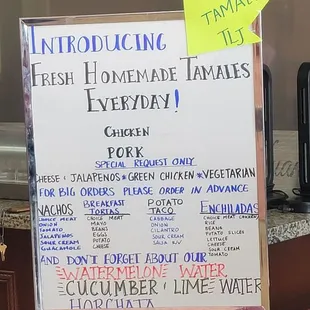 TAMALE
TLJ
INTRODUCING
FRESH HOMEMADE TAMALES
EVERYDAY!
CHICKEN
PORK
SPECIAL REQUEST ONLY
CHEESE & JALAPENOS * GREEN CHICKEN * VEGETARIAN
FOR BIG ORDERS PLEASE ORDER IN ADVANCE
NACHOS
CHOICE MEAT
ONION
TOMATO
JALAPENOS
SOUR CREAM
GUACAMOLE
BREAKFAST
TORTAS
CHOICE MEAT
MAYO
BEANS
EGGS
POTATO
CHEESE
POTATO
TACO
CABBAGE
ONION
CILANTRO
SOUR CREAM
SALSA
ENCHILADAS
CHOICE MEAT
RICE
BEANS
POTATO SLICES
LETTUCE
CHEESE
SOUR CREAM
TOMATO
AND DON'T FORGET ABOUT OUR
WATERMELON WATER
CUCUMBER & LIME WATER
HORCHATA